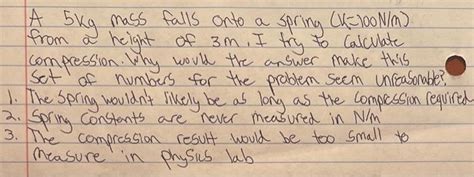 A 5kg mass falls onto a spring (K=100N/m)
from a height of 3m. I try to calculate
compression. Why would the answer make this
set of numbers for the problem seem unreasonable?
1. The spring wouldn't likely be as long as the compression required
2. Spring constants are never measured in N/m
3. The compression result would be too small to
measure in physics lab